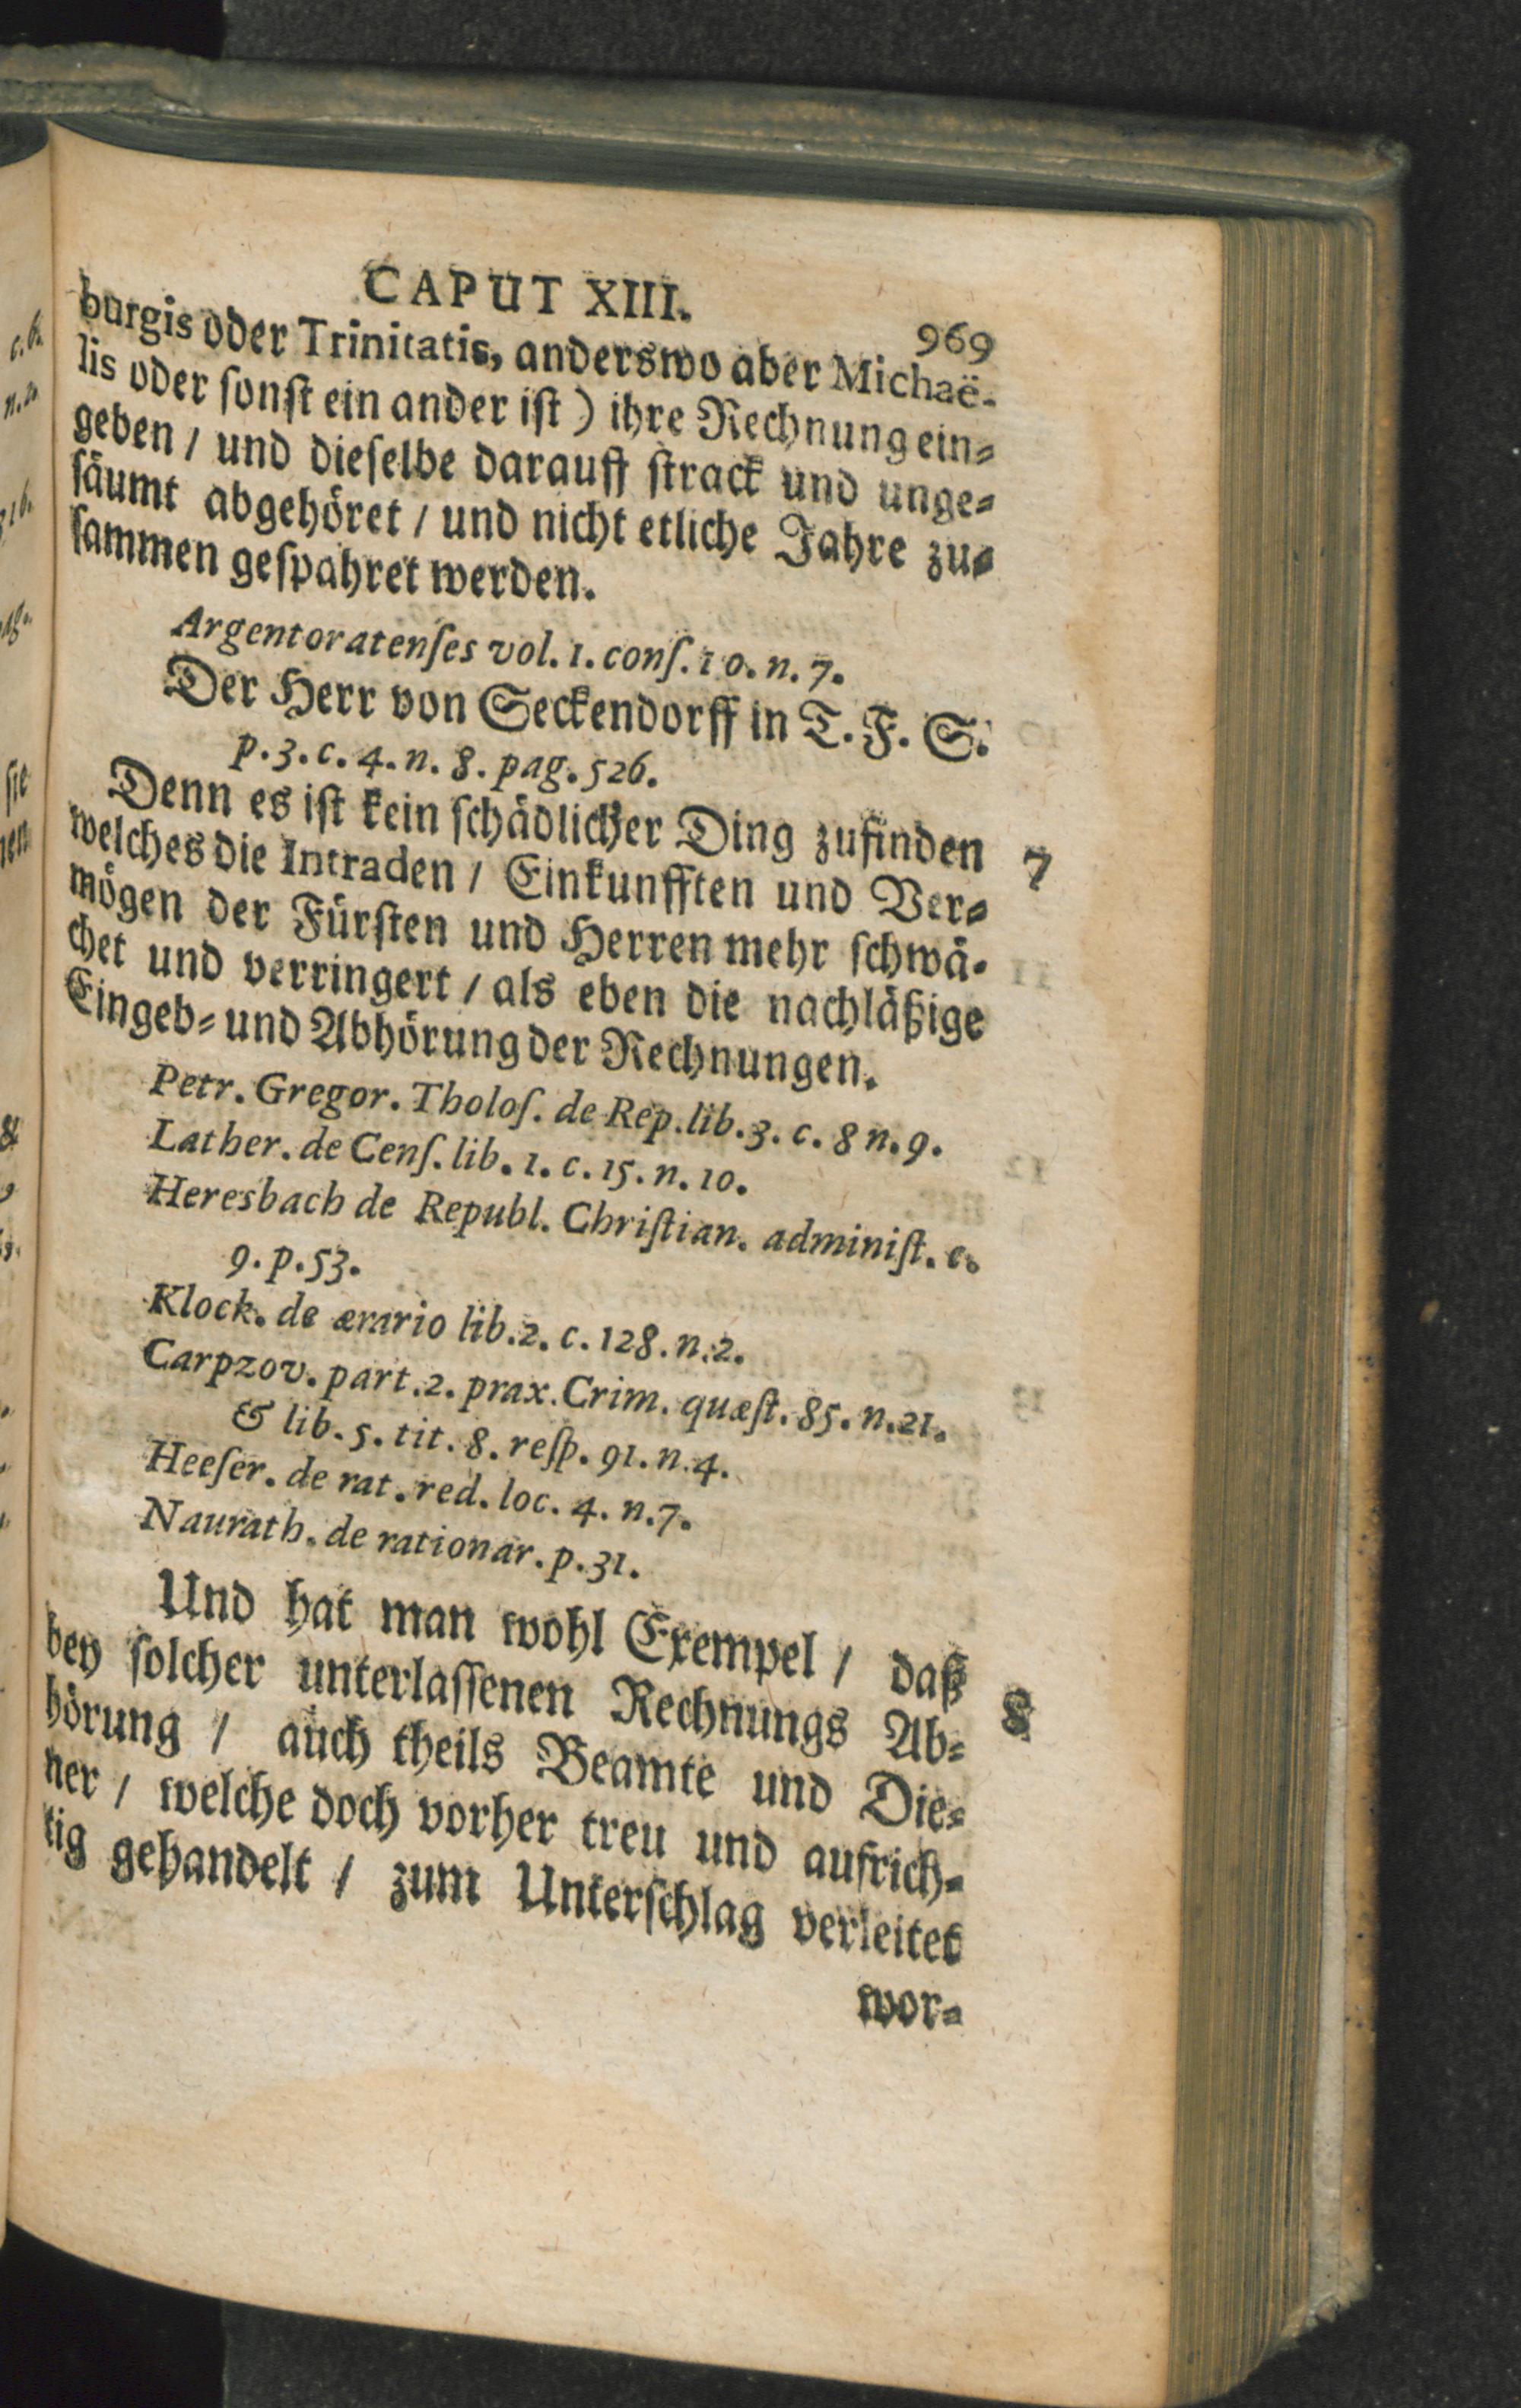 CAPUT XIII.
969
burgis oder Trinitatis, anderswo aber Michaë-
lis oder ſonſt ein ander iſt) ihre Rechnung ein-
geben / und dieſelbe darauff ſtrack und unge-
ſäumt abgehöret / und nicht etliche Jahre zu-
ſammen geſpahret werden.
Argentoratenſes vol. 1. conſ. 10. n. 7.
Der Herr von Seckendorff in T. F. S.
p. 3. c. 4. n. 8. pag. 526.
Denn es iſt kein ſchädlicher Ding zufinden
7
welches die Intraden / Einkunfften und Ver-
mögen der Fürſten und Herren mehr ſchwä-
chet und verringert / als eben die nachläßige
Eingeb- und Abhörung der Rechnungen.
Petr. Gregor. Tholoſ. de Rep. lib. 3. c. 8 n. 9.
Lather. de Cenſ. lib. 1. c. 15. n. 10.
Heresbach de Republ. Chriſtian. adminiſt. c.
9. p. 53.
Klock. de ærario lib. 2. c. 128. n. 2.
Carpzov. part. 2. prax. Crim. quæſt. 85. n. 21.
& lib. 5. tit. 8. reſp. 91. n. 4.
Heeſer. de rat. red. loc. 4. n. 7.
Naurath. de rationar. p. 31.
Und hat man wohl Exempel / daß
8
bey ſolcher unterlaſſenen Rechnungs Ab-
hörung / auch theils Beamte und Die-
ner / welche doch vorher treu und aufrich-
tig gehandelt / zum Unterſchlag verleitet
wor-